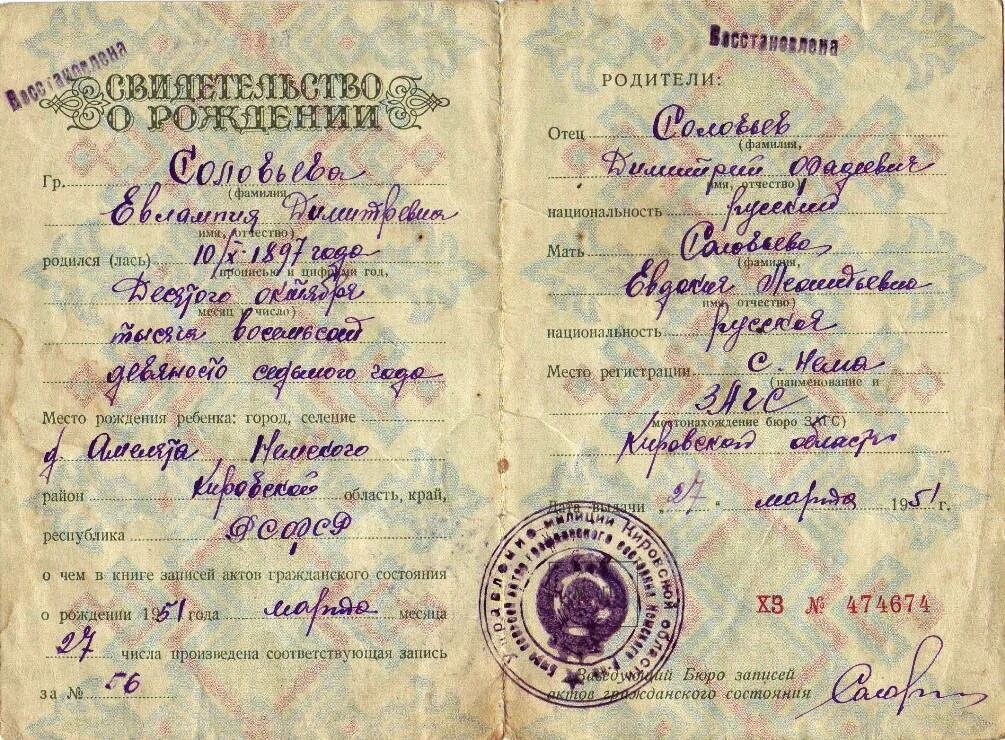 Восстановлена
СВИДЕТЕЛЬСТВО
О РОЖДЕНИИ
Гр. Соловьева
(фамилия,
Евлампия Димитревна
имя, отчество)
родился (лась) 10/X-1897 года
(прописью и цифрами год,
Десятого октября
месяц и число)
тысяча восемьсот
девяносто седьмого года
Место рождения ребенка: город, селение
д. Амелята, Немского
район Кировской область, край,
республика РСФСР
о чем в книге записей актов гражданского состояния
о рождении 1951 года марта месяца
27 числа произведена соответствующая запись
за № 56
Восстановлена
РОДИТЕЛИ:
Отец Соловьев
(фамилия,
Димитрий Фадеевич
имя, отчество)
национальность русский
Мать Соловьева
(фамилия,
Евдокия Леонтьевна
имя, отчество)
национальность русская
Место регистрации с. Нема
(наименование и
ЗАГС
местонахождение бюро ЗАГС)
Кировской области
Дата выдачи „27" марта 1951 г.
Управление милиции Кировской области
Бюро записей актов гражданского состояния
ХЗ № 474674
Заведующий Бюро записей
актов гражданского состояния